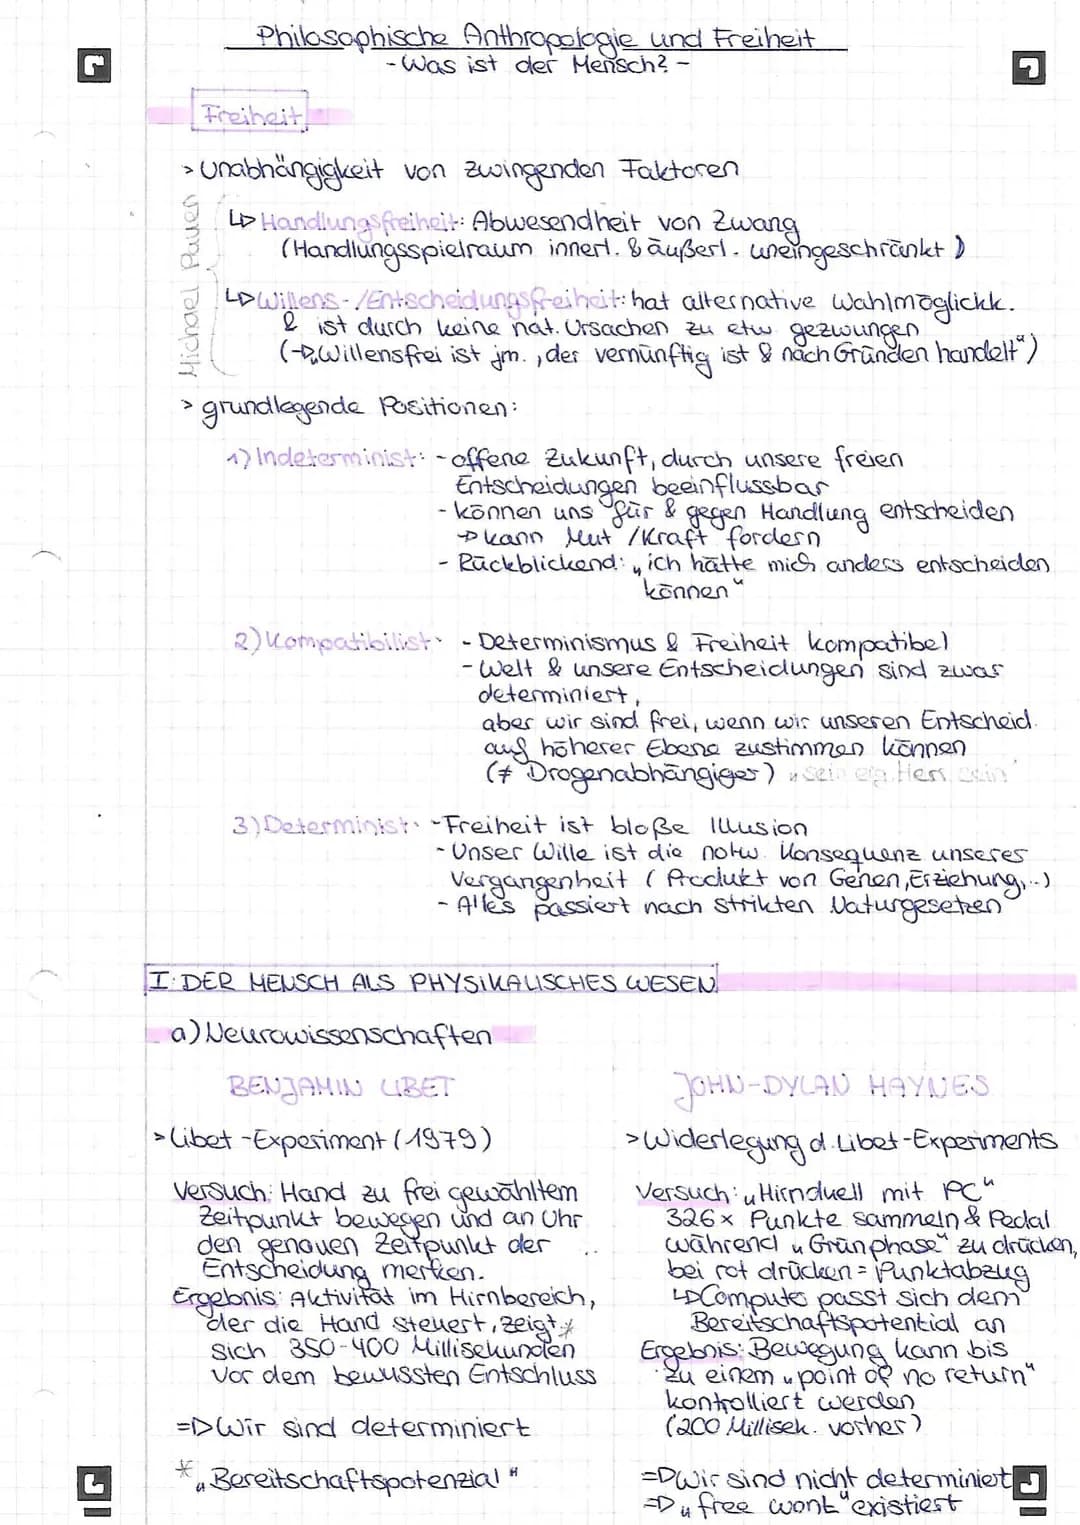 Philosophische Anthropologie und Freiheit
- Was ist der Mensch? -
Freiheit
> Unabhängigkeit von zwingenden Faktoren
Michael Pauen
↳ Handlungsfreiheit: Abwesendheit von Zwang
(Handlungsspielraum innerl. & äußerl. uneingeschränkt)
↳ Willens-/Entscheidungsfreiheit: hat alternative Wahlmöglichk.
& ist durch keine nat. Ursachen zu etw. gezwungen
(→„Willensfrei ist jm., der vernünftig ist & nach Gründen handelt“)
> grundlegende Positionen:
1) Indeterminist: - offene Zukunft, durch unsere freien
Entscheidungen beeinflussbar
- können uns für & gegen Handlung entscheiden
→ kann Mut /Kraft fordern
- Rückblickend: „ich hätte mich anders entscheiden
können“
2) Kompatibilist: - Determinismus & Freiheit kompatibel
- Welt & unsere Entscheidungen sind zwar
determiniert,
aber wir sind frei, wenn wir unseren Entscheid.
auf höherer Ebene zustimmen können
(≠ Drogenabhängiger) „sein eig. Herr sein“
3) Determinist: - Freiheit ist bloße Illusion
- Unser Wille ist die notw. Konsequenz unseres
Vergangenheit (Produkt von Genen, Erziehung,..)
- Alles passiert nach strikten Naturgesetzen
I. DER MENSCH ALS PHYSIKALISCHES WESEN
a) Neurowissenschaften
BENJAMIN LIBET
> Libet-Experiment (1979)
Versuch: Hand zu frei gewähltem
Zeitpunkt bewegen und an Uhr
den genauen Zeitpunkt der
Entscheidung merken.
Ergebnis: Aktivität im Hirnbereich,
der die Hand steuert, zeigt *
sich 350-400 Millisekunden
vor dem bewussten Entschluss
=> Wir sind determiniert
* „Bereitschaftspotenzial“
JOHN-DYLAN HAYNES
> Widerlegung d. Libet-Experiments
Versuch: „Hirnduell mit PC“
326x Punkte sammeln & Pedal
während „Grünphase“ zu drücken,
bei rot drücken = Punktabzug
↳ Compute passt sich dem
Bereitschaftspotential an
Ergebnis: Bewegung kann bis
zu einem „point of no return“
kontrolliert werden
(200 Millisek. vorher)
=> Wir sind nicht determiniert
=> „free wont“ existiert